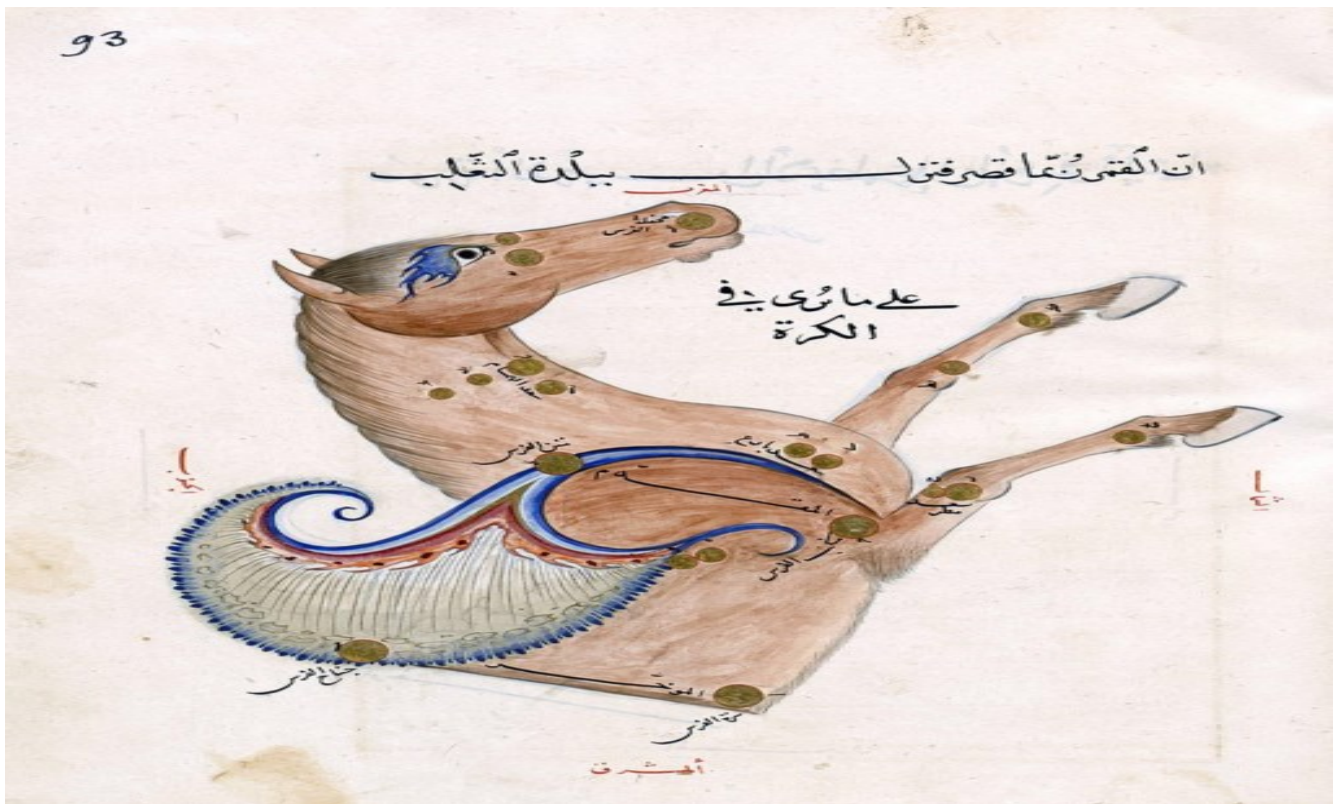 93
انّ القمر رُبّما قصر فنزل ببلدة الثّعلب
المغرب
جحفلة الفرس
على ما تُرى في
الكرة
سعد الهمام
متن الفرس
سعد بارع
الجنوب
الشمال
المقدم
سعد مطر
منكب الفرس
جناح الفرس
الموخر
سرة الفرس
المشرق